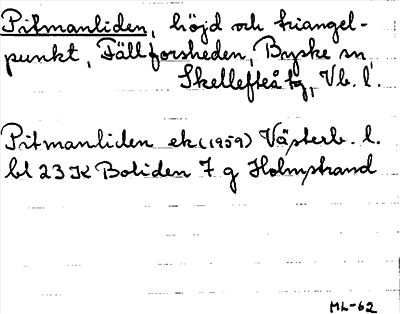 Pitmanliden, höjd och triangel-
punkt, Fällforsheden, Byske sn,
Skellefteå tg, Vb. l.
Pitmanliden ek (1959) Västerb. l.
bl 23 K Boliden 7 g Holmstrand
ML-62